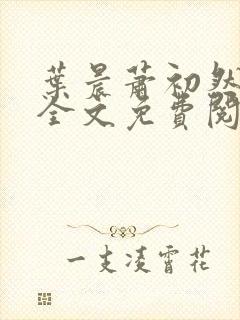 葉晨蕭初然
全文免費閱
一支凌霄花